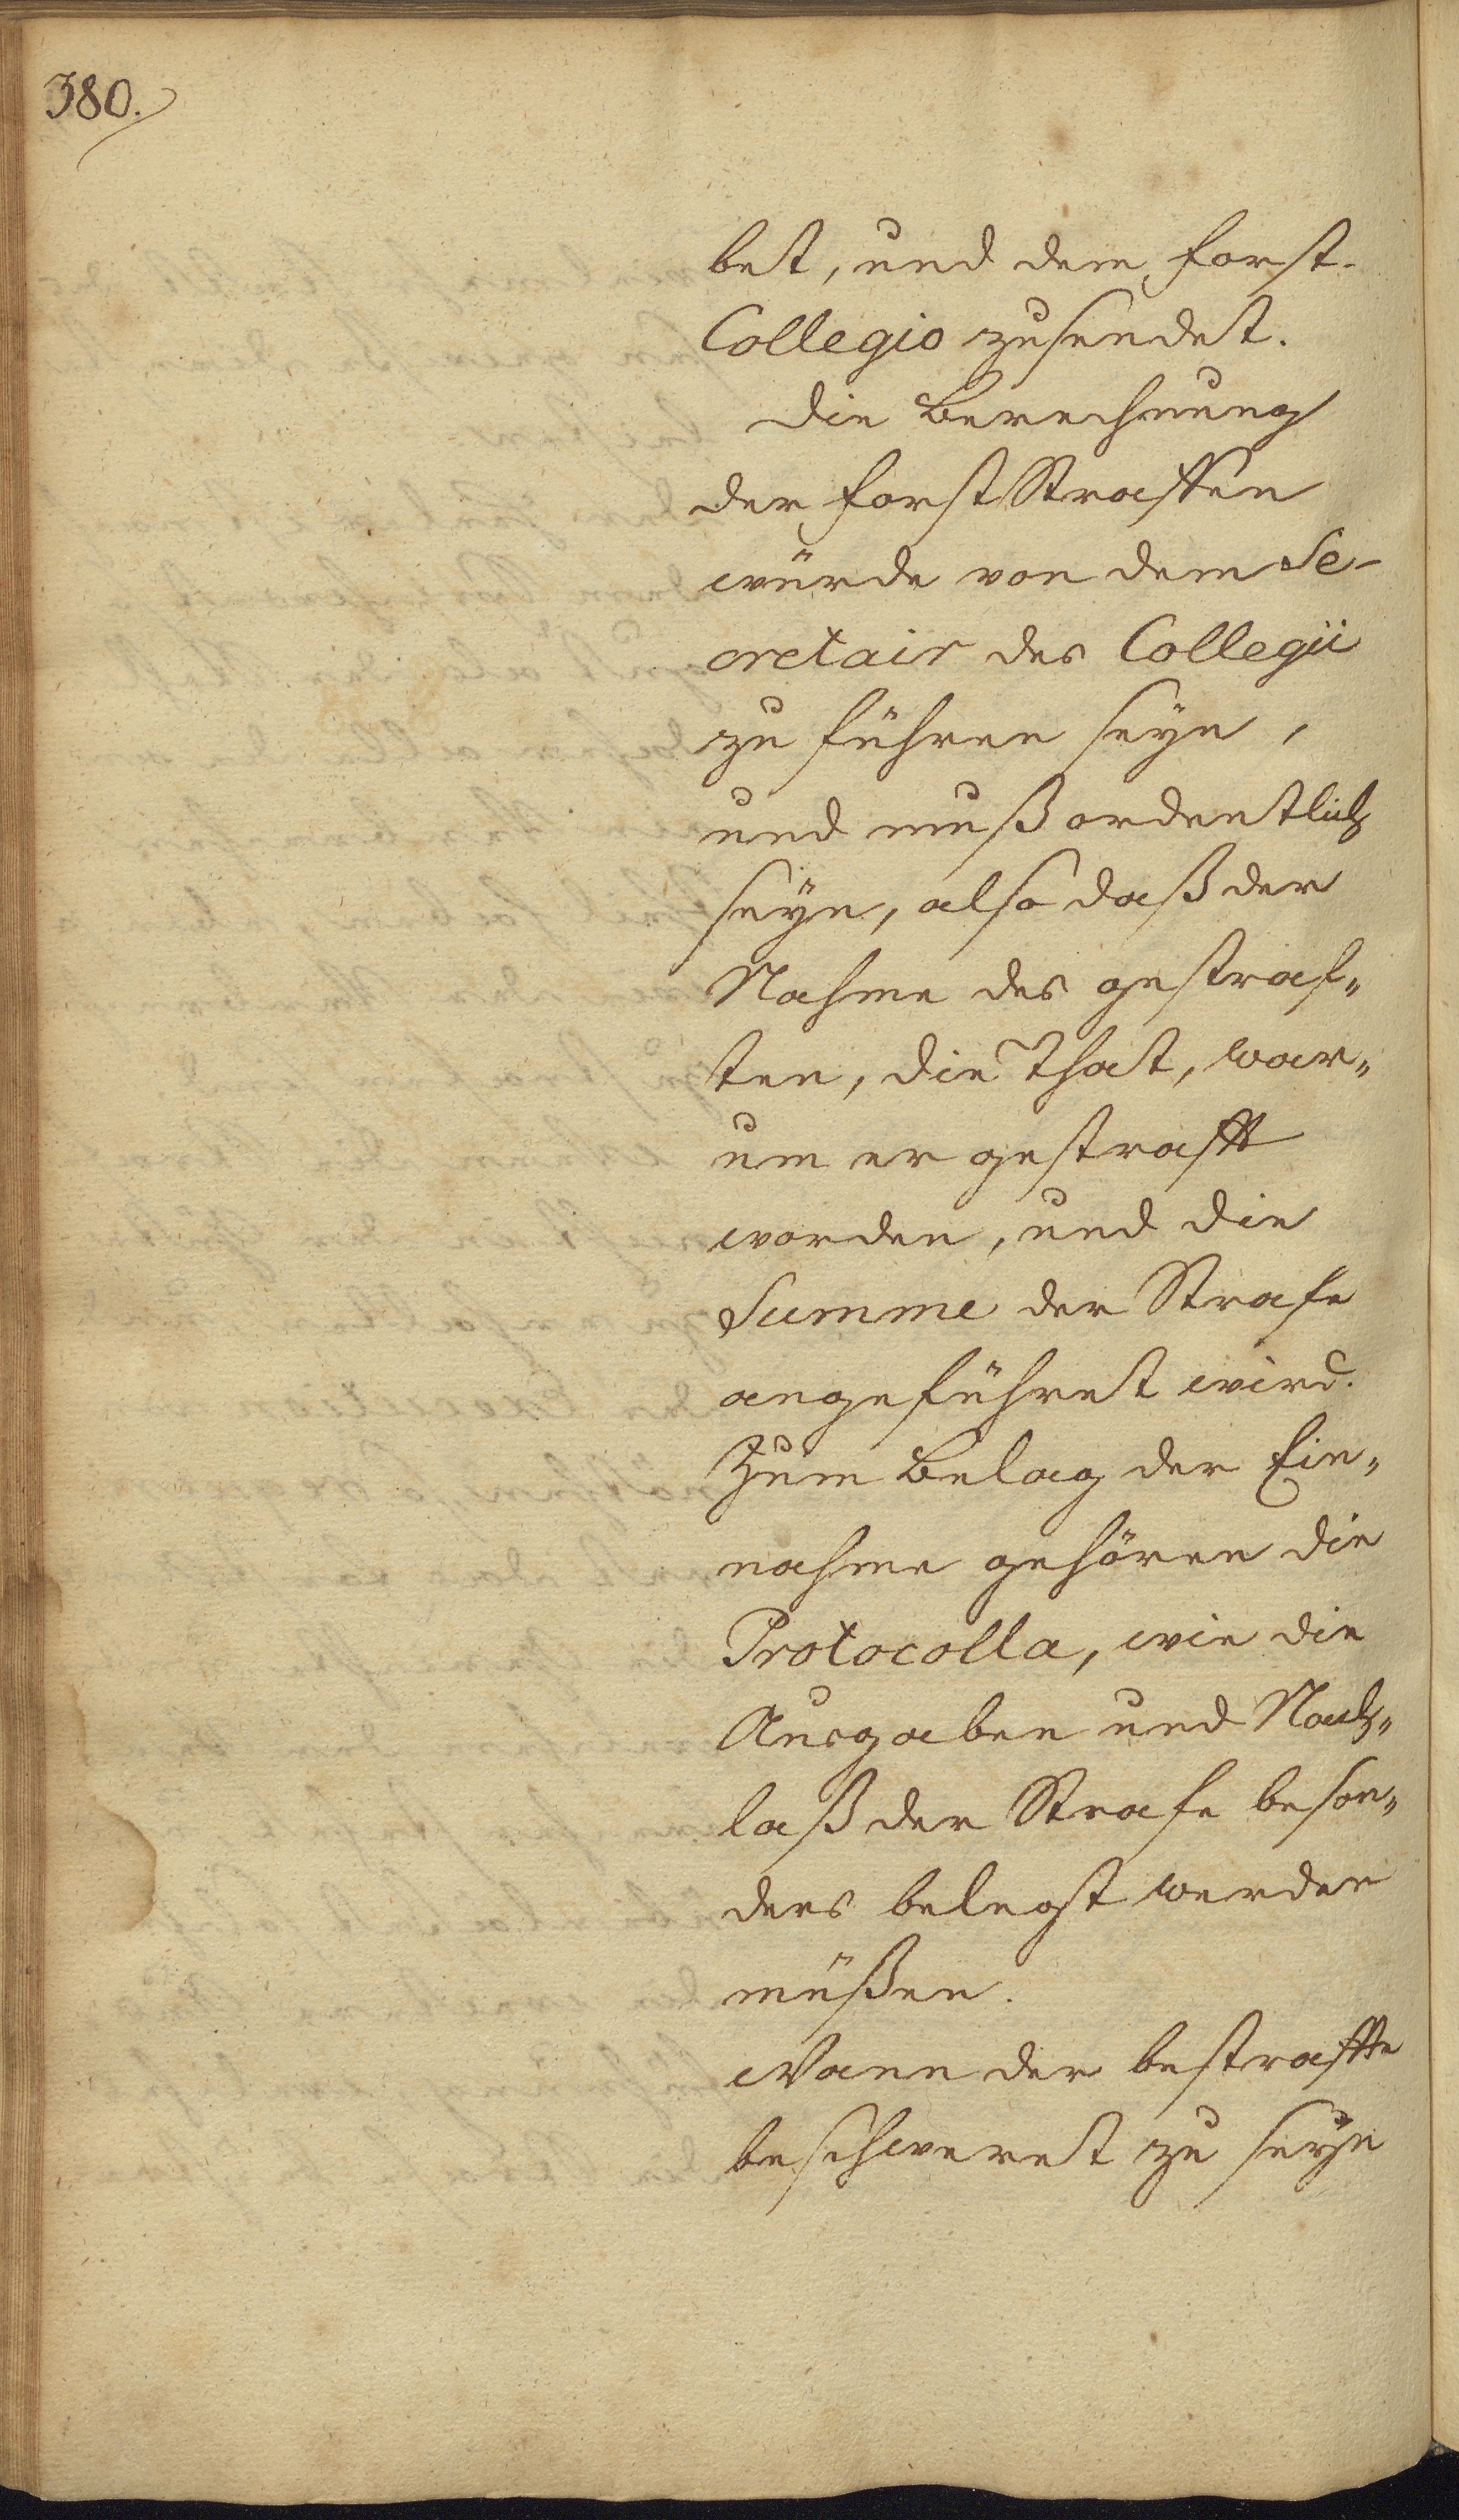 380.
bet, und dem Forst-
Collegio zusendet.
Die Berechnung
der Forst Straffen
würde von dem Se-
cretair des Collegii
zu führen seyn,
und muß ordentlich
seyn, also daß der
Nahme des gestraf„
ten, die That, war„
um er gestrafft
worden, und die
Summe der Strafe
angeführet wird.
Zum Belag der Ein„
nahme gehören die
Protocolla, wie die
Ausgaben und Nach„
laß der Strafe beson„
ders belegt werden
müßen.
Wann der bestraffte
beschweret zu seyn